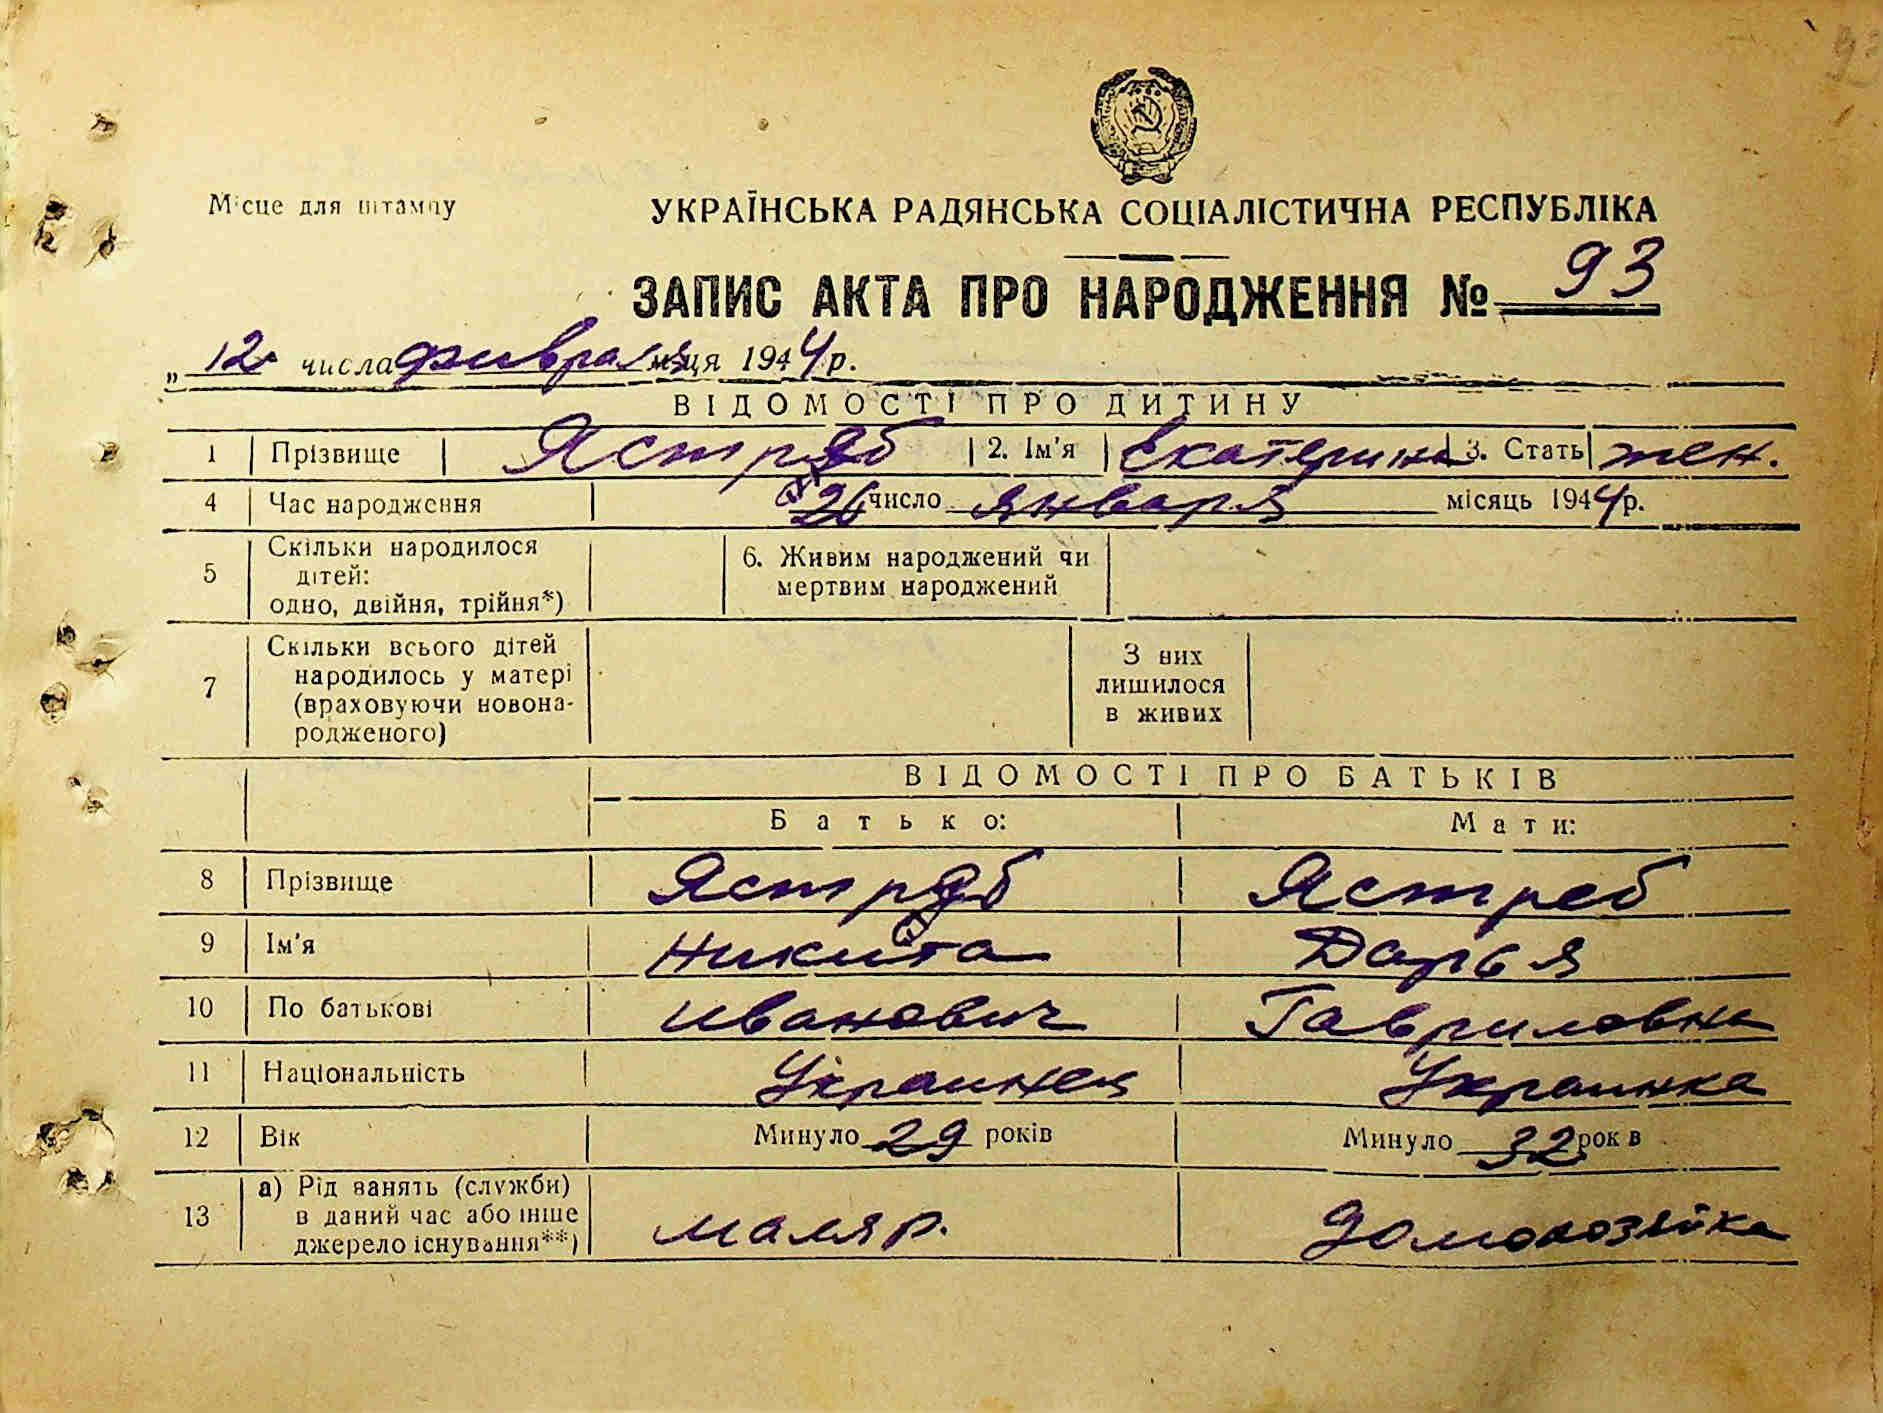 Місце для штампу
УКРАЇНСЬКА РАДЯНСЬКА СОЦІАЛІСТИЧНА РЕСПУБЛІКА
ЗАПИС АКТА ПРО НАРОДЖЕННЯ № 93
„ 12 числа февраля м-ця 1944 р.
ВІДОМОСТІ ПРО ДИТИНУ
1 Прізвище Ястряб 2. Ім'я Екатерина 3. Стать жен.
4 Час народження 26 число января місяць 1944 р.
5 Скільки народилося дітей: одно, двійня, трійня*) 6. Живим народжений чи мертвим народжений
7 Скільки всього дітей народилось у матері (враховуючи новонародженого) З них лишилося в живих
ВІДОМОСТІ ПРО БАТЬКІВ
Батько: Мати:
8 Прізвище Ястряб Ястреб
9 Ім'я Никита Дарья
10 По батькові Иванович Гавриловна
11 Національність Украинец Украинка
12 Вік Минуло 29 років Минуло 32 рок в
13 а) Рід занять (служби) в даний час або інше джерело існування**) маляр. домохозяйка